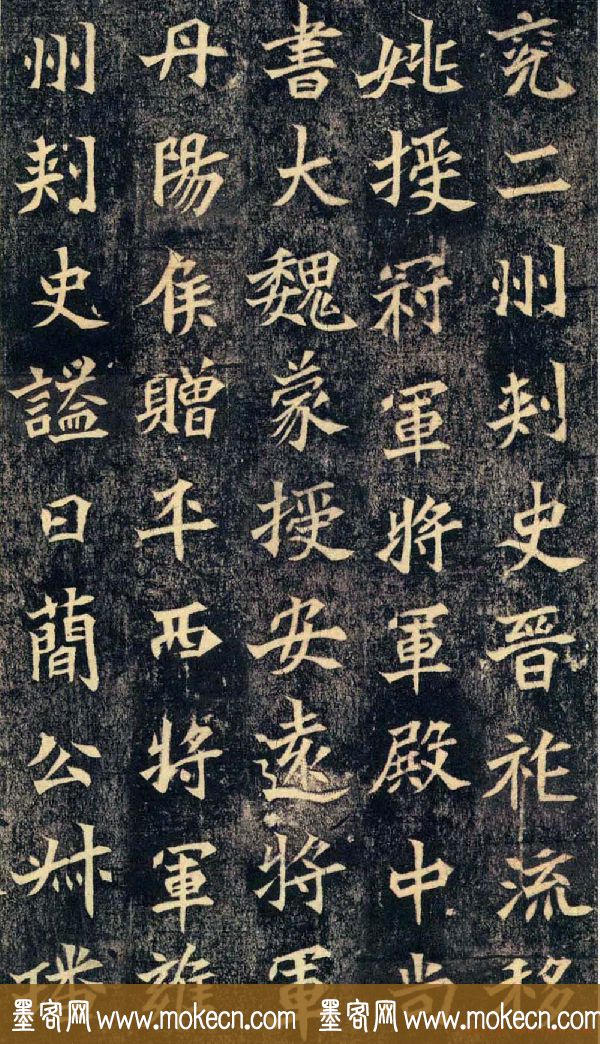 兗二州刾史晉祚流移
姚授冠軍將軍殿中尚
書大魏蒙授安遠將軍
丹陽侯贈平西將軍雍
州刾史謚曰蕳公叔璠
墨客网 www.mokecn.com 墨客网 www.mokecn.com